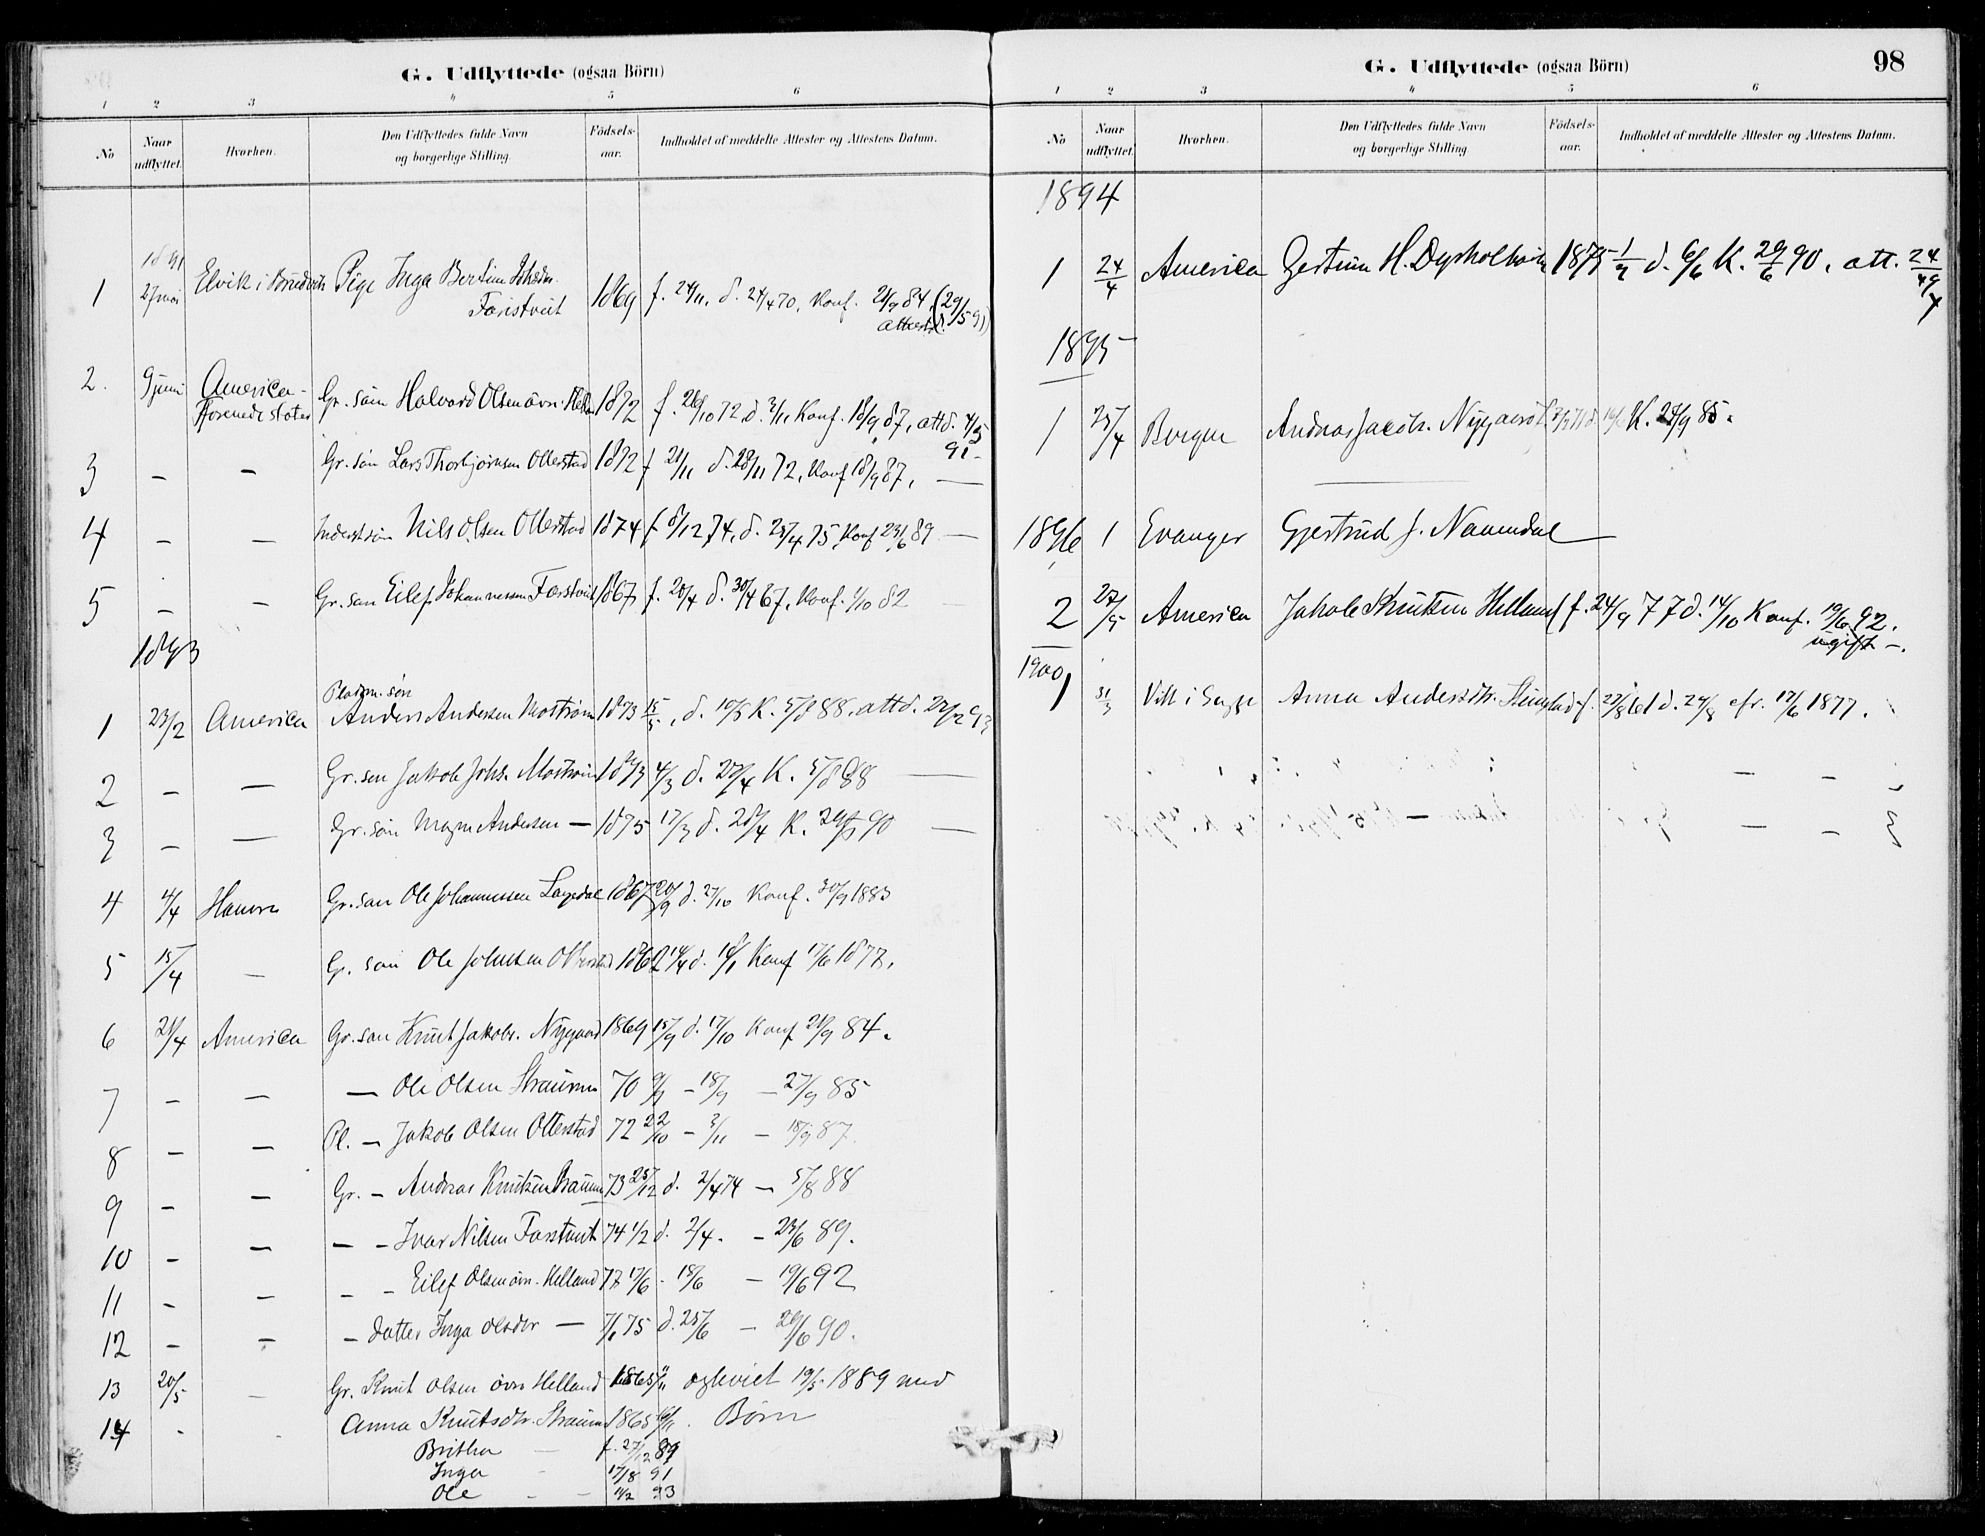 G. Udflyttede (ogsaa Börn)
1 2 3 4 5 6
No Naar udflyttet. Hvorhen. Den Udflyttedes fulde Navn og borgerlige Stilling. Födsels-aar. Indholdet af meddelte Attester og Attestens Datum.
1891
1 27 mai Elvik i Pige Inga Bertine
1869 f. 24/11, d. 24/4 70, Konf. 84, (29/5 91)
attest
2. 9 juni America - Gr. søn Halvard Olsen øvr. Hell. 1872 f. 26/10 72, d. 3/11 Konf. 18/9 87, att d. 4/5
Forenede stater 91 -
3 - - Gr. søn Lars Thorbjørnsen Otterstad 1872 f 21/11 d. 28/11 72, Konf 18/9 87, —
4 - - Nils Olsen Otterstad 1874 f 8/12 74, d. 25/4 75, Konf 23/6 89 —
5 - - Gr. søn Eilef Johannessen 1867 f. 20/4 d. 30/4 67, Konf. 1/10 82 —
1893
Pladsm. søn
1 23/2 America Anders Andersen Mostrøm 1873 15/5, d. 19/5 K. 5/8 88, att d. 23/2 93
2 - — Gr. søn Jakob Johs. Mostrøm 1873 4/3 d. 27/4 K. 5/8 88 —
3 - — Gr. søn Magne Andersen — 1875 17/3 d. 28/4 K. 90 —
4 4/4 Hamre Gr. søn Ole Johannessen 1867 20/9 d. 27/10 Konf. 30/9 1883
5 15/4 — Gr. søn Ole Johnsen Otterstad 1862 d. Konf 17/6 1877.
6 21/4 America Gr. søn Knut Jakobs. Nygaard 1869 15/9 d. 17/10 Konf 21/9 84.
7 - — — Ole Olsen Straume 70 - 18/9 — 27/9 85
8 - — Pl. — Jakob Olsen Otterstad 72 22/10 - 3/11 — 18/9 87.
9 - - Gr. - Andreas Knutsen Straume 73 25/12 d. 2/4 74 — 5/8 88
10 - - — - Ivar Nilsen 74 1/2 d. 2/4. - 23/6 89.
11 - - - - Eilef Olsen øvr. Helland 77 17/6 - 18/6 — 19/6 92
12 - - - datter Inga Olsdtr — 7/ 75 d. 25/6 — 29/6 90.
13 20/5 - Gr. Knut Olsen øvr Helland 1865 ogkviet 19/5 1889 med
14 - - Anna Knutsdtr. Straume 1865 Børn
Britha — f. 27/12 89
Inga - 17/8 91
Ole - - 11/2 93
G. Udflyttede (ogsaa Börn) 98
1 2 3 4 5 6
No Naar udflyttet. Hvorhen. Den Udflyttedes fulde Navn og borgerlige Stilling. Födsels-aar. Indholdet af meddelte Attester og Attestens Datum.
1894
1 24/4 America H. 1875 d. 6/6 K. 29/6 90. att. 24/4
1895
1 25/4 Bergen Andreas Jacobs. Nygaard K. 27/9 85.
1896 1 Evanger Gjertrud J. Naamdal —
2 27/5 America Jakob Knutsen Helland f. 24/9 77 d. 14/10 Konf. 19/6 92.
ugift -.
1900
1 31/3 Vik i Sogn Anna Andersdtr. f. 27/8 61 d. 29/8 cfr. 17/6 1877.